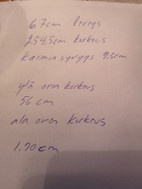 67cm leveys
254,5cm korkeus
karmin syvyys 9,5cm
ylä oven korkeus
56 cm
ala oven korkeus
1.90cm